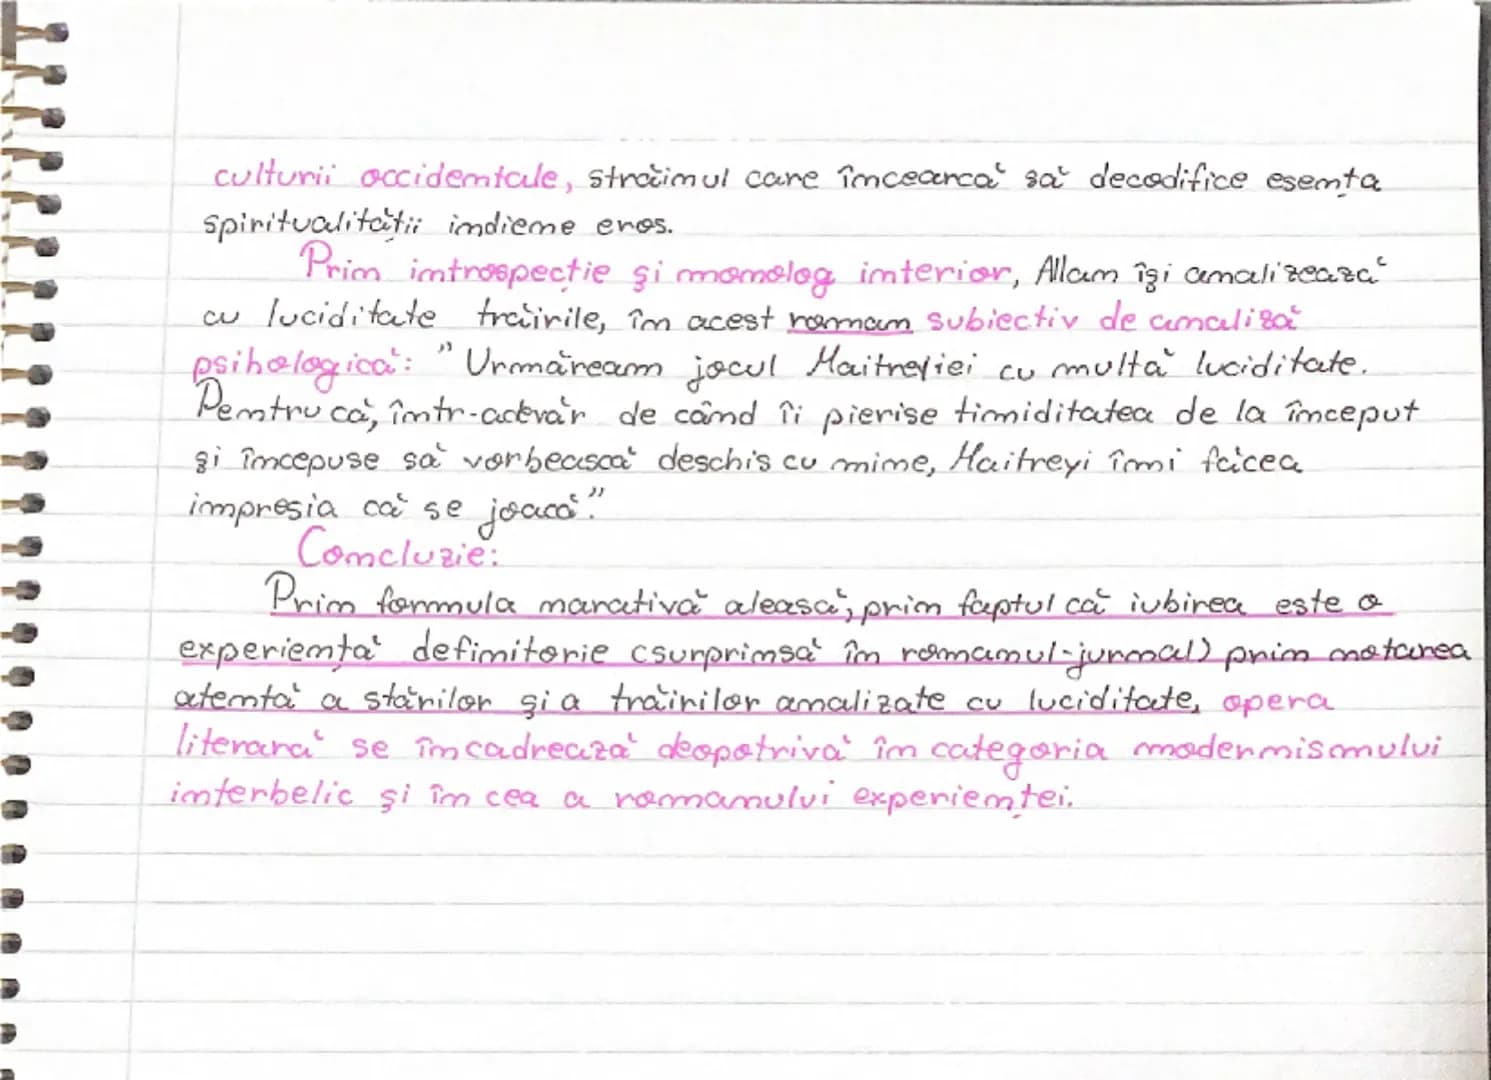 culturii occidentale, străinul care încearcă să decodifice esența
spiritualității indiene eros.
Prin introspecție și monolog interior, Allan își analizează
cu luciditate trăirile, în acest roman subiectiv de analiză
psihologică: "Urmăream jocul Maitreyiei cu multă luciditate.
Pentru că, într-adevăr de când îi pierise timiditatea de la început
și începuse să vorbească deschis cu mine, Maitreyi îmi făcea
impresia că se joacă."
Concluzie:
Prin formula narativă aleasă, prin faptul că iubirea este o
experiență definitorie (surprinsă în romanul-jurnal) prin notarea
atentă a stărilor și a trăirilor analizate cu luciditate, opera
literară se încadrează deopotrivă în categoria modernismului
interbelic și în cea a romanului experienței.